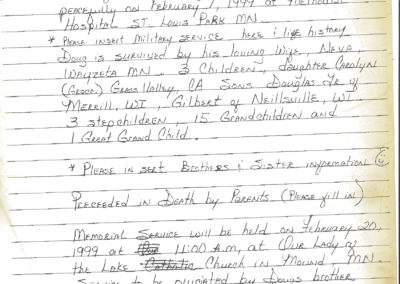 peacefully on February 7, 1999 at Methodist
Hospital ST. Louis Park MN.
* Please insert Military Service here & life history
Doug is survived by his loving Wife, Neva,
Wayzeta MN, 3 Children, daughter Carolyn
(Greco) Grass Valley, CA Sons Douglas Jr of
Merrill, WI, Gilbert of Neillsville, WI.
3 stepchildren, 15 Grandchildren and
1 Great Grand Child
* Please in sert Brothers & Sister information
Preceeded in Death by Parents (Please fill in)
Memorial Service will be held on February 20,
1999 at 11:00 A.M, at Our Lady of
the Lake Catholic Church in Mound MN.
Service to be officiated by Dougs brother